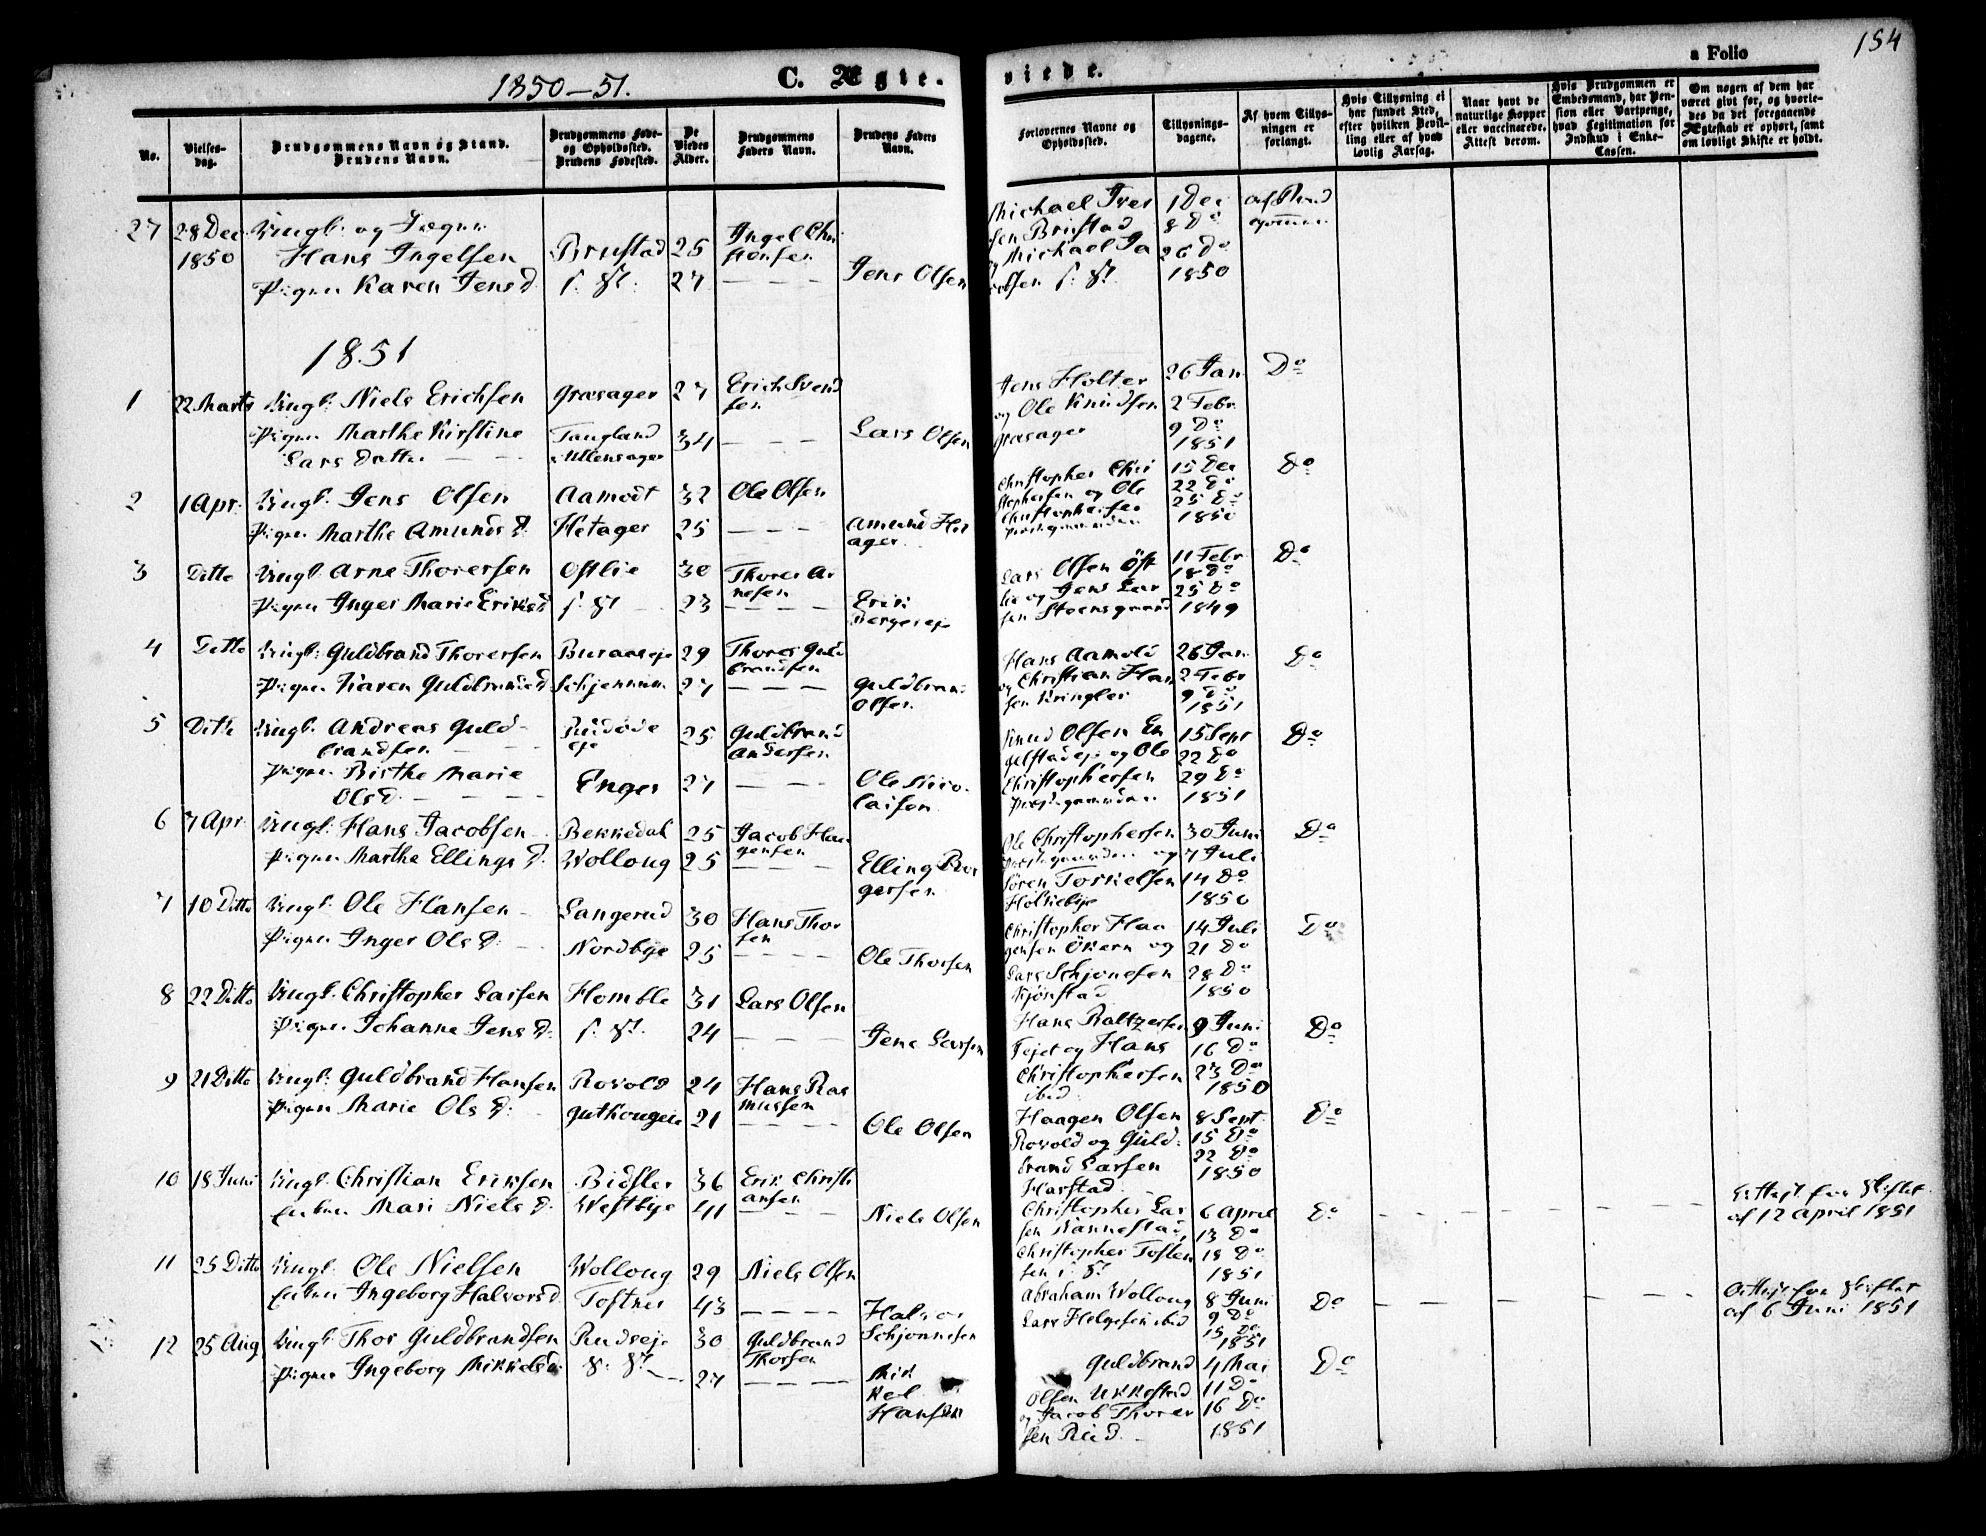 1850-51.
C. Ægte.
viede.
a Folio
154
No.
Vielses-
dag.
Brudgommens Navn og Stand.
Brudens Navn.
Brudgommens Føde-
og Opholdssted.
Brudens Fødested.
De
Viedes
Alder.
Brudgommens
Faders Navn.
Brudens Faders
Navn.
Forlovernes Navne og
Opholdssted.
Tillysnings-
dagene.
Af hvem Tillys-
ningen er
forlangt.
Hvis Tillysning ei
har fundet Sted,
efter hvilken Bevil-
ling eller af hvad
lovlig Aarsag.
Naar havt de
naturlige Kopper
eller vaccinerede.
Attest derom.
Hvis Brudgommen er
Embedsmand, har Pen-
sion eller Vartpenge,
hvad Legitimation for
Indskud i Enke-
Cassen.
Om nogen af dem har
været givt før, og hvorle-
des da det foregaaende
Ægteskab er ophørt, samt
om lovligt Skifte er holdt.
27 28 Dec 1850 Ungk. og
Hans Ingelsen Brustad 25 Ingel Chri
stensen
Pigen Karen Jensd. s. St. 27 - - - Jens Olsen
Michael Iver
sen Brustad
og Michael Ja
cobsen s. St.
1 Dec
8 Do
26 Do
1850
af Brud
gommen
1851
1 22 Marts Ungk. Niels Erichsen Græsager 27 Erich Svend
sen
Pigen Marthe Kirstine Taugland 34 - - - Lars Olsen
Lars Datter - - Ullensager
Jens Holter
og Ole Knudsen
Græsager
26 Jan
2 Febr
9 Do
1851
Do
2 1 Apr. Ungk. Jens Olsen Aamodt 32 Ole Olsen
Pigen Marthe Amunds D. Hetager 25 - - - Amund Het
ager
Christopher Chri
stophersen og Ole
Christophersen
15 Dec
22 Do
25 Do
1850
Do
3 Ditto Ungk. Arne Thoresen Ostlie 30 Thores Ar
nesen
Pigen Inger Marie Eriksd s. St - 23 - - - Erik
Bergerseje
Lars Olsen Öst
lie og Jens Lar
sen Steensgaard
11 Febr
18 Do
25 Do
1849
Do
4 Ditto Ungk. Guldbrand Thoresen Buraaseje 29 Thores Guld
brandsen
Pigen Karen Guldbrandsd. 27 - - - Guldbrand
Olsen
Hans Aamold
og Christian Han
sen Kringler
26 Jan
2 Febr
9 Do
1851
Do
5 Ditto Ungk. Andreas Guld-
brandsen - - eje 25 Guldbrand
Andersen
Pigen Birthe Marie Enger 27 - - - Ole Nico-
laisen
Ols D. - - -
Knud Olsen En
gelstadej. og Ole
Christophersen
15 Sept
22 Do
29 Do
1851
Do
6 7 Apr Ungk. Hans Jacobsen Bekkedal 25 Jacob Haa
gensen
Pigen Marthe Ellings D. Wollong 25 - - Elling Bor
gersen
Ole Christophersen
og
Søren Torkelsen
Holkebye
30 Juni
7 Juli
14 Do
1850
Do
7 10 Ditto Ungk. Ole Hansen - Langerud 30 Hans Thor
sen
Pigen Inger Ols D. - Nordbye 25 - - - Ole Thorsen
Christopher Haa
gensen Ökern og
Lars Schjonesen
Kjönstad
14 Juli
21 Do
28 Do
1850
Do
8 22 Ditto Ungk. Christopher Larsen Homble 31 Lars Olsen
Pigen Johanne Jens D. s. St. 24 - - - Jens Larsen
Hans Baltzersen
Tejet og Hans
Christophersen
ibid
9 Juni
16 Do
23 Do
1850
Do
9 21 Ditto Ungk. Guldbrand Hansen Rovold 24 Hans Ras
mussen
Pigen Marie Ols D. - 21 - - - Ole Olsen
Haagen Olsen
Rovold og Guld-
brand Larsen
Harstad
8 Sept.
15 Do
22 Do
1850
Do
10 18 Juni Ungk. Christian Eriksen Bidsler 36 Erik Christi
ansen
Enken Mari Niels D. Westbye 41 - - - Niels Olsen
Christopher Lar
sen Nannestad,
Christopher Tosten
sen i. St
6 April
13 Do
18 Do
1851
Do - - - - - - - -
Attest for Skiftet
af 12 April 1851
11 25 Ditto Ungk. Ole Nielsen Wollong 29 Niels Olsen
Enken Ingeborg Halvorsd. Toftner 43 - - - Halvor
Schjonnesen
Abraham Wollong
Lars Helgesen ibid
8 Juni
9 Do
15 Do
1851
Do - - - - - - - -
Attest for Skiftet
af 6 Juni 1851
12 25 Aug Ungk. Thor Guldbrandsen Rudseje 30 Guldbrand
Thorsen
Pigen Ingeborg Mikkelsd. s. St. - 27 - - - Mik
kel
Hansen
Guldbrand
Olsen Ukkestad
og Jacob Thorer
sen Rud. -
4 Mai
11 Do
16 Do
1851
Do